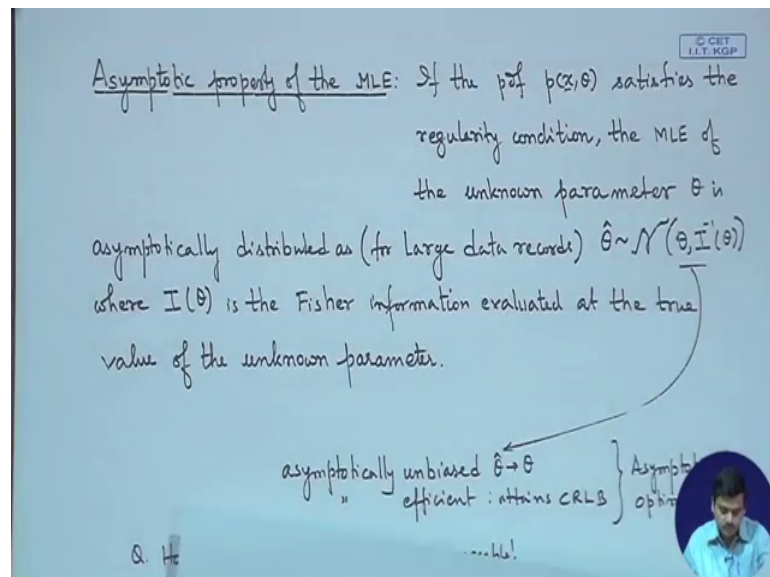 © CET
I.I.T. KGP
Asymptotic property of the MLE: If the pdf p(x,θ) satisfies the
regularity condition, the MLE of
the unknown parameter θ is
asymptotically distributed as (for Large data records) θ̂ ~ N(θ, I⁻¹(θ))
where I(θ) is the Fisher information evaluated at the true
value of the unknown parameter.
asymptotically unbiased θ̂→θ
" efficient : attains CRLB } 
Q.